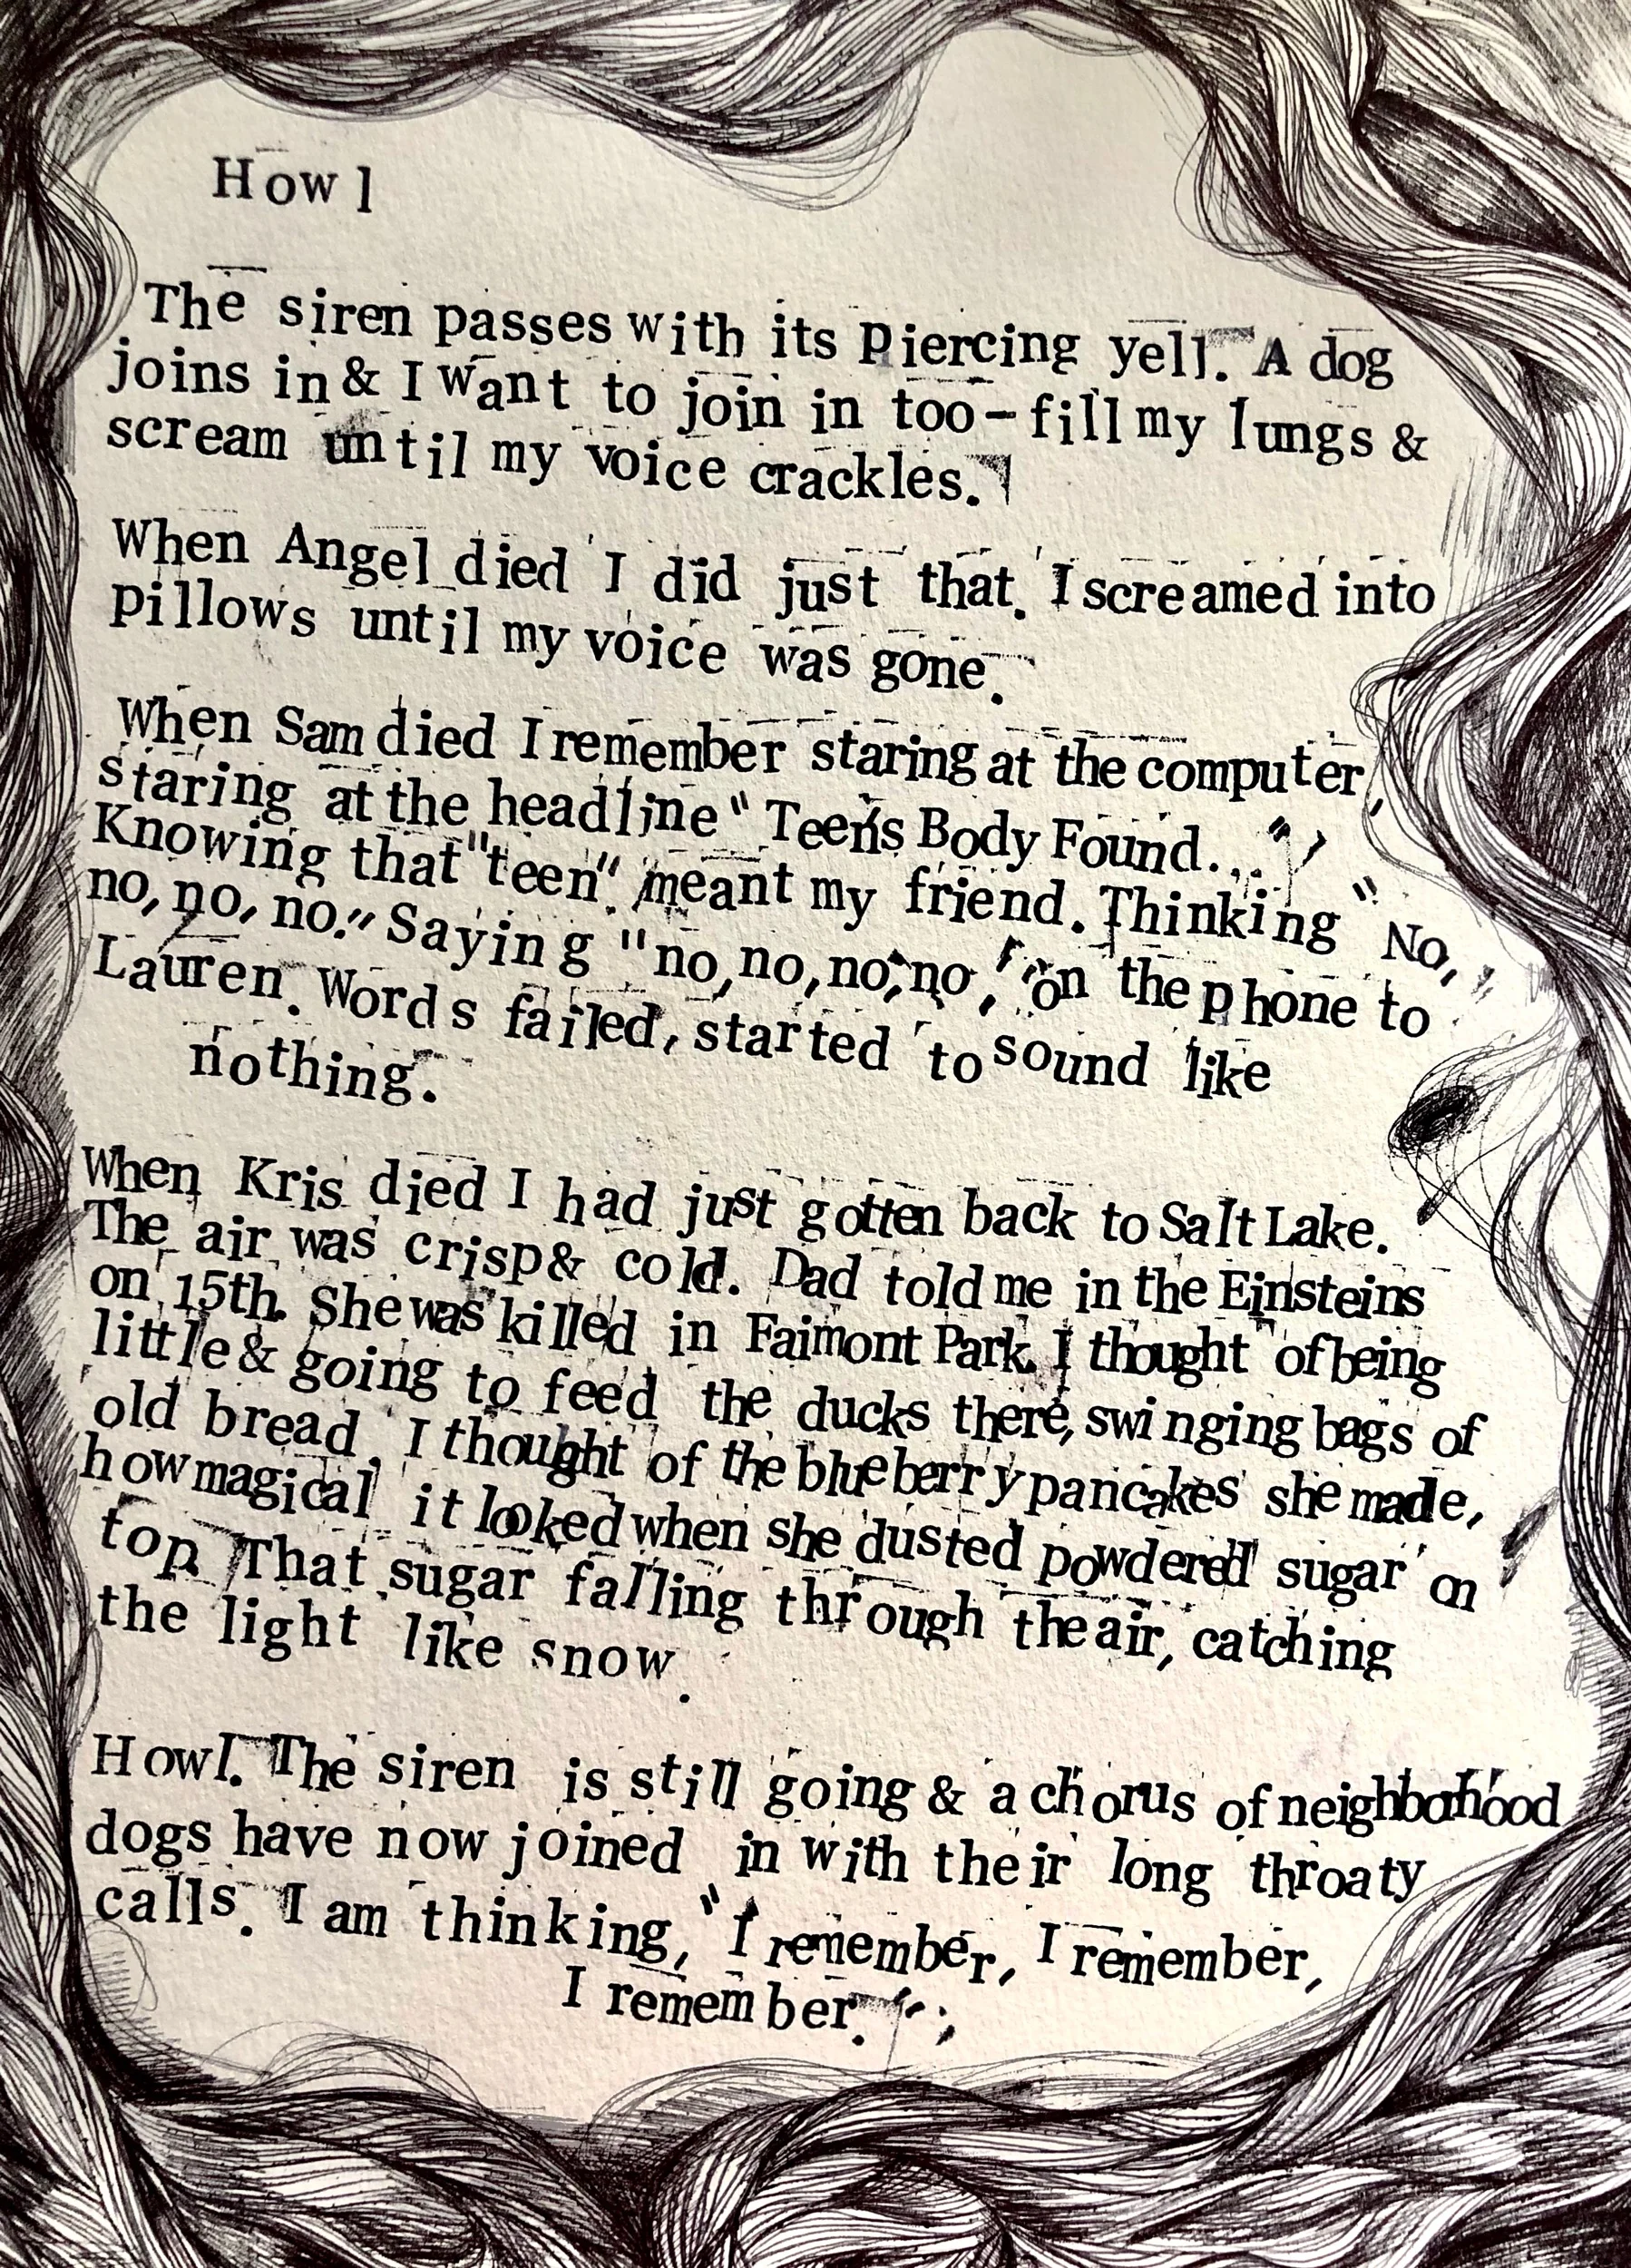 Howl
The siren passes with its piercing yell. A dog
joins in & I want to join in too - fill my lungs &
scream until my voice crackles.
When Angel died I did just that. I screamed into
pillows until my voice was gone.
When Sam died I remember staring at the computer,
staring at the headline "Teen's Body Found..."
Knowing that "teen" meant my friend. Thinking "No,
no, no, no." Saying "no, no, no, no," on the phone to
Lauren. Words failed, started to sound like
nothing.
When Kris died I had just gotten back to Salt Lake.
The air was crisp & cold. Dad told me in the Einsteins
on 15th. She was killed in Faimont Park. I thought of being
little & going to feed the ducks there, swinging bags of
old bread. I thought of the blueberry pancakes she made,
how magical it looked when she dusted powdered sugar on
top. That sugar falling through the air, catching
the light like snow.
Howl. The siren is still going & a chorus of neighborhood
dogs have now joined in with their long throaty
calls. I am thinking, "I remember, I remember,
I remember."